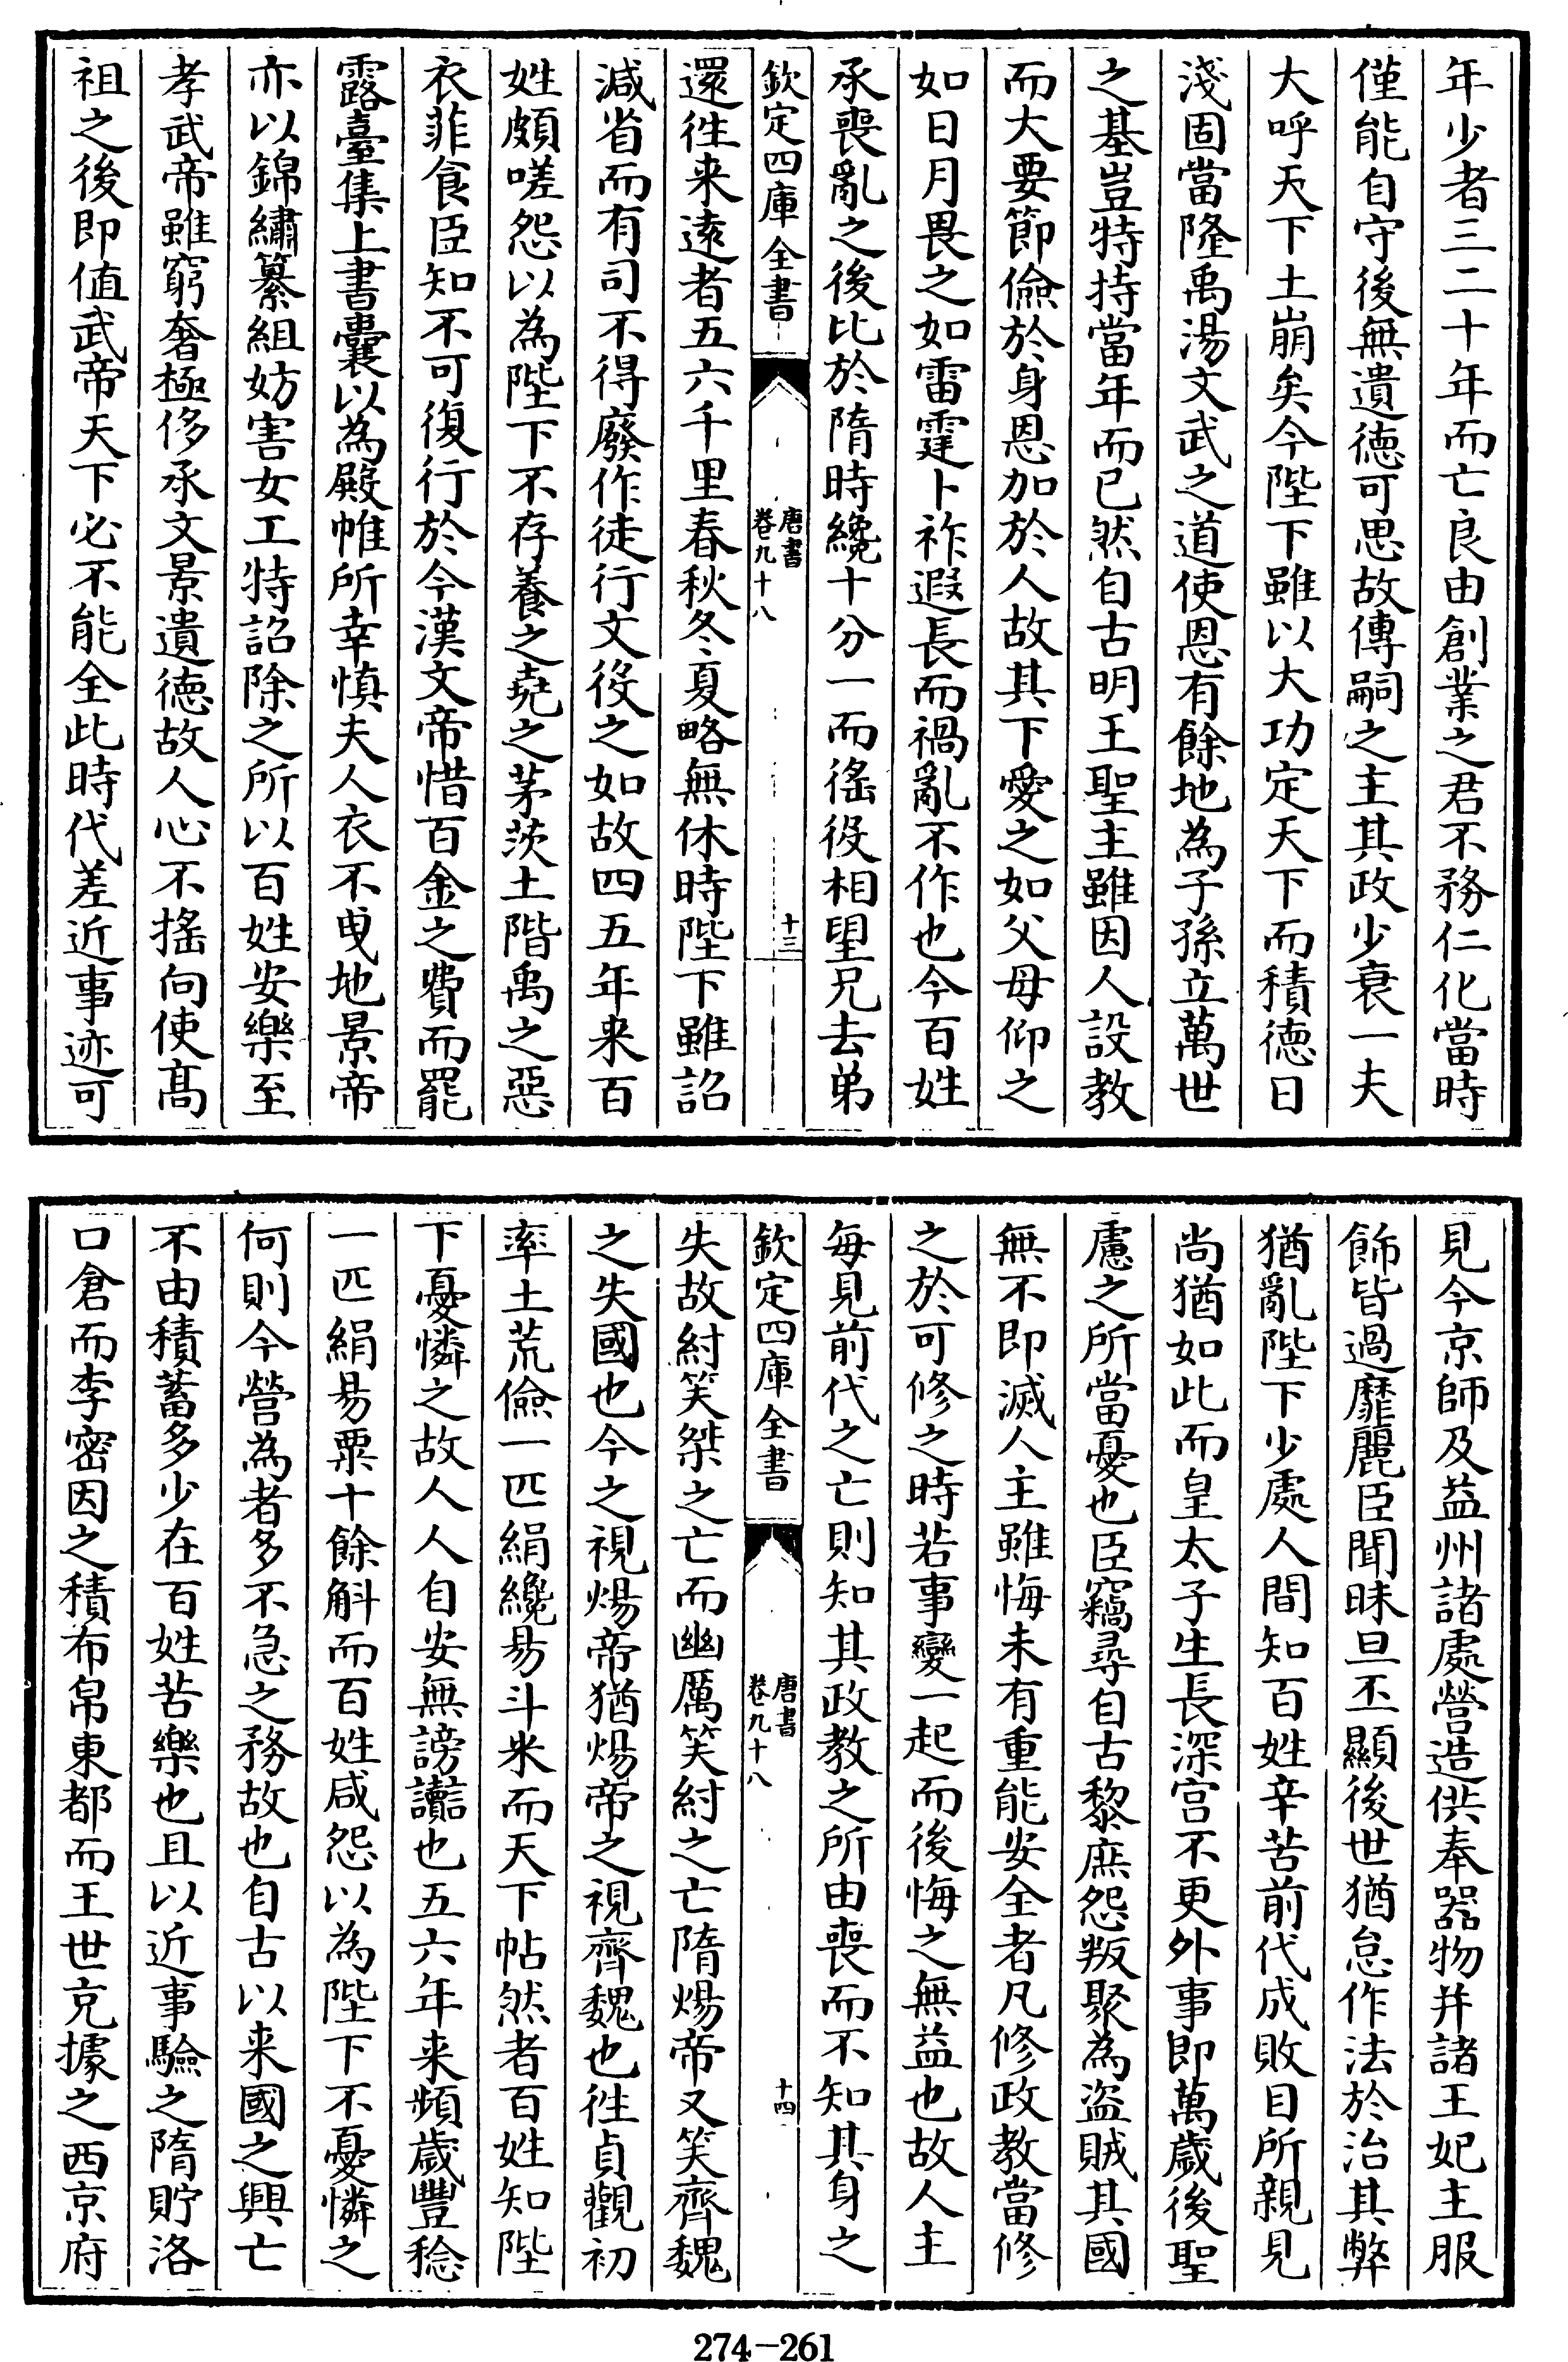 年少者三二十年而亡良由創業之君不務仁化當時
僅能自守後無遺徳可思故傳嗣之主其政少衰一夫
大呼天下土崩矣今陛下雖以大功定天下而積徳日
淺固當隆禹湯文武之道使恩有餘地為子孫立萬世
之基豈特持當年而已然自古明王聖主雖因人設教
而大要節儉於身恩加於人故其下愛之如父母仰之
如日月畏之如雷霆卜祚遐長而禍亂不作也今百姓
承喪亂之後比於隋時纔十分一而徭役相望兄去弟
欽定四庫全書
唐書
卷九十八
十三
還徃来逺者五六千里春秋冬夏略無休時陛下雖詔
減省而有司不得廢作徒行文役之如故四五年来百
姓頗嗟怨以為陛下不存養之堯之茅茨土階禹之惡
衣菲食臣知不可復行於今漢文帝惜百金之費而罷
露臺集上書囊以為殿帷所幸慎夫人衣不曳地景帝
亦以錦繡纂組妨害女工特詔除之所以百姓安樂至
孝武帝雖窮奢極侈承文景遺徳故人心不搖向使髙
祖之後即值武帝天下必不能全此時代差近事迹可
見今京師及益州諸處營造供奉器物并諸王妃主服
飾皆過靡麗臣聞昧旦丕顯後世猶怠作法於治其弊
猶亂陛下少處人間知百姓辛苦前代成敗目所親見
尚猶如此而皇太子生長深宫不更外事即萬歲後聖
慮之所當憂也臣竊尋自古黎庶怨叛聚為盜賊其國
無不即滅人主雖悔未有重能安全者凡修政教當修
之於可修之時若事變一起而後悔之無益也故人主
每見前代之亡則知其政教之所由喪而不知其身之
欽定四庫全書
唐書
卷九十八
十四
失故紂笑桀之亡而幽厲笑紂之亡隋煬帝又笑齊魏
之失國也今之視煬帝猶煬帝之視齊魏也徃貞觀初
率土荒儉一匹絹纔易斗米而天下帖然者百姓知陛
下憂憐之故人人自安無謗讟也五六年来頻歲豐稔
一匹絹易粟十餘斛而百姓咸怨以為陛下不憂憐之
何則今營為者多不急之務故也自古以来國之興亡
不由積蓄多少在百姓苦樂也且以近事驗之隋貯洛
口倉而李密因之積布帛東都而王世充據之西京府
274-261